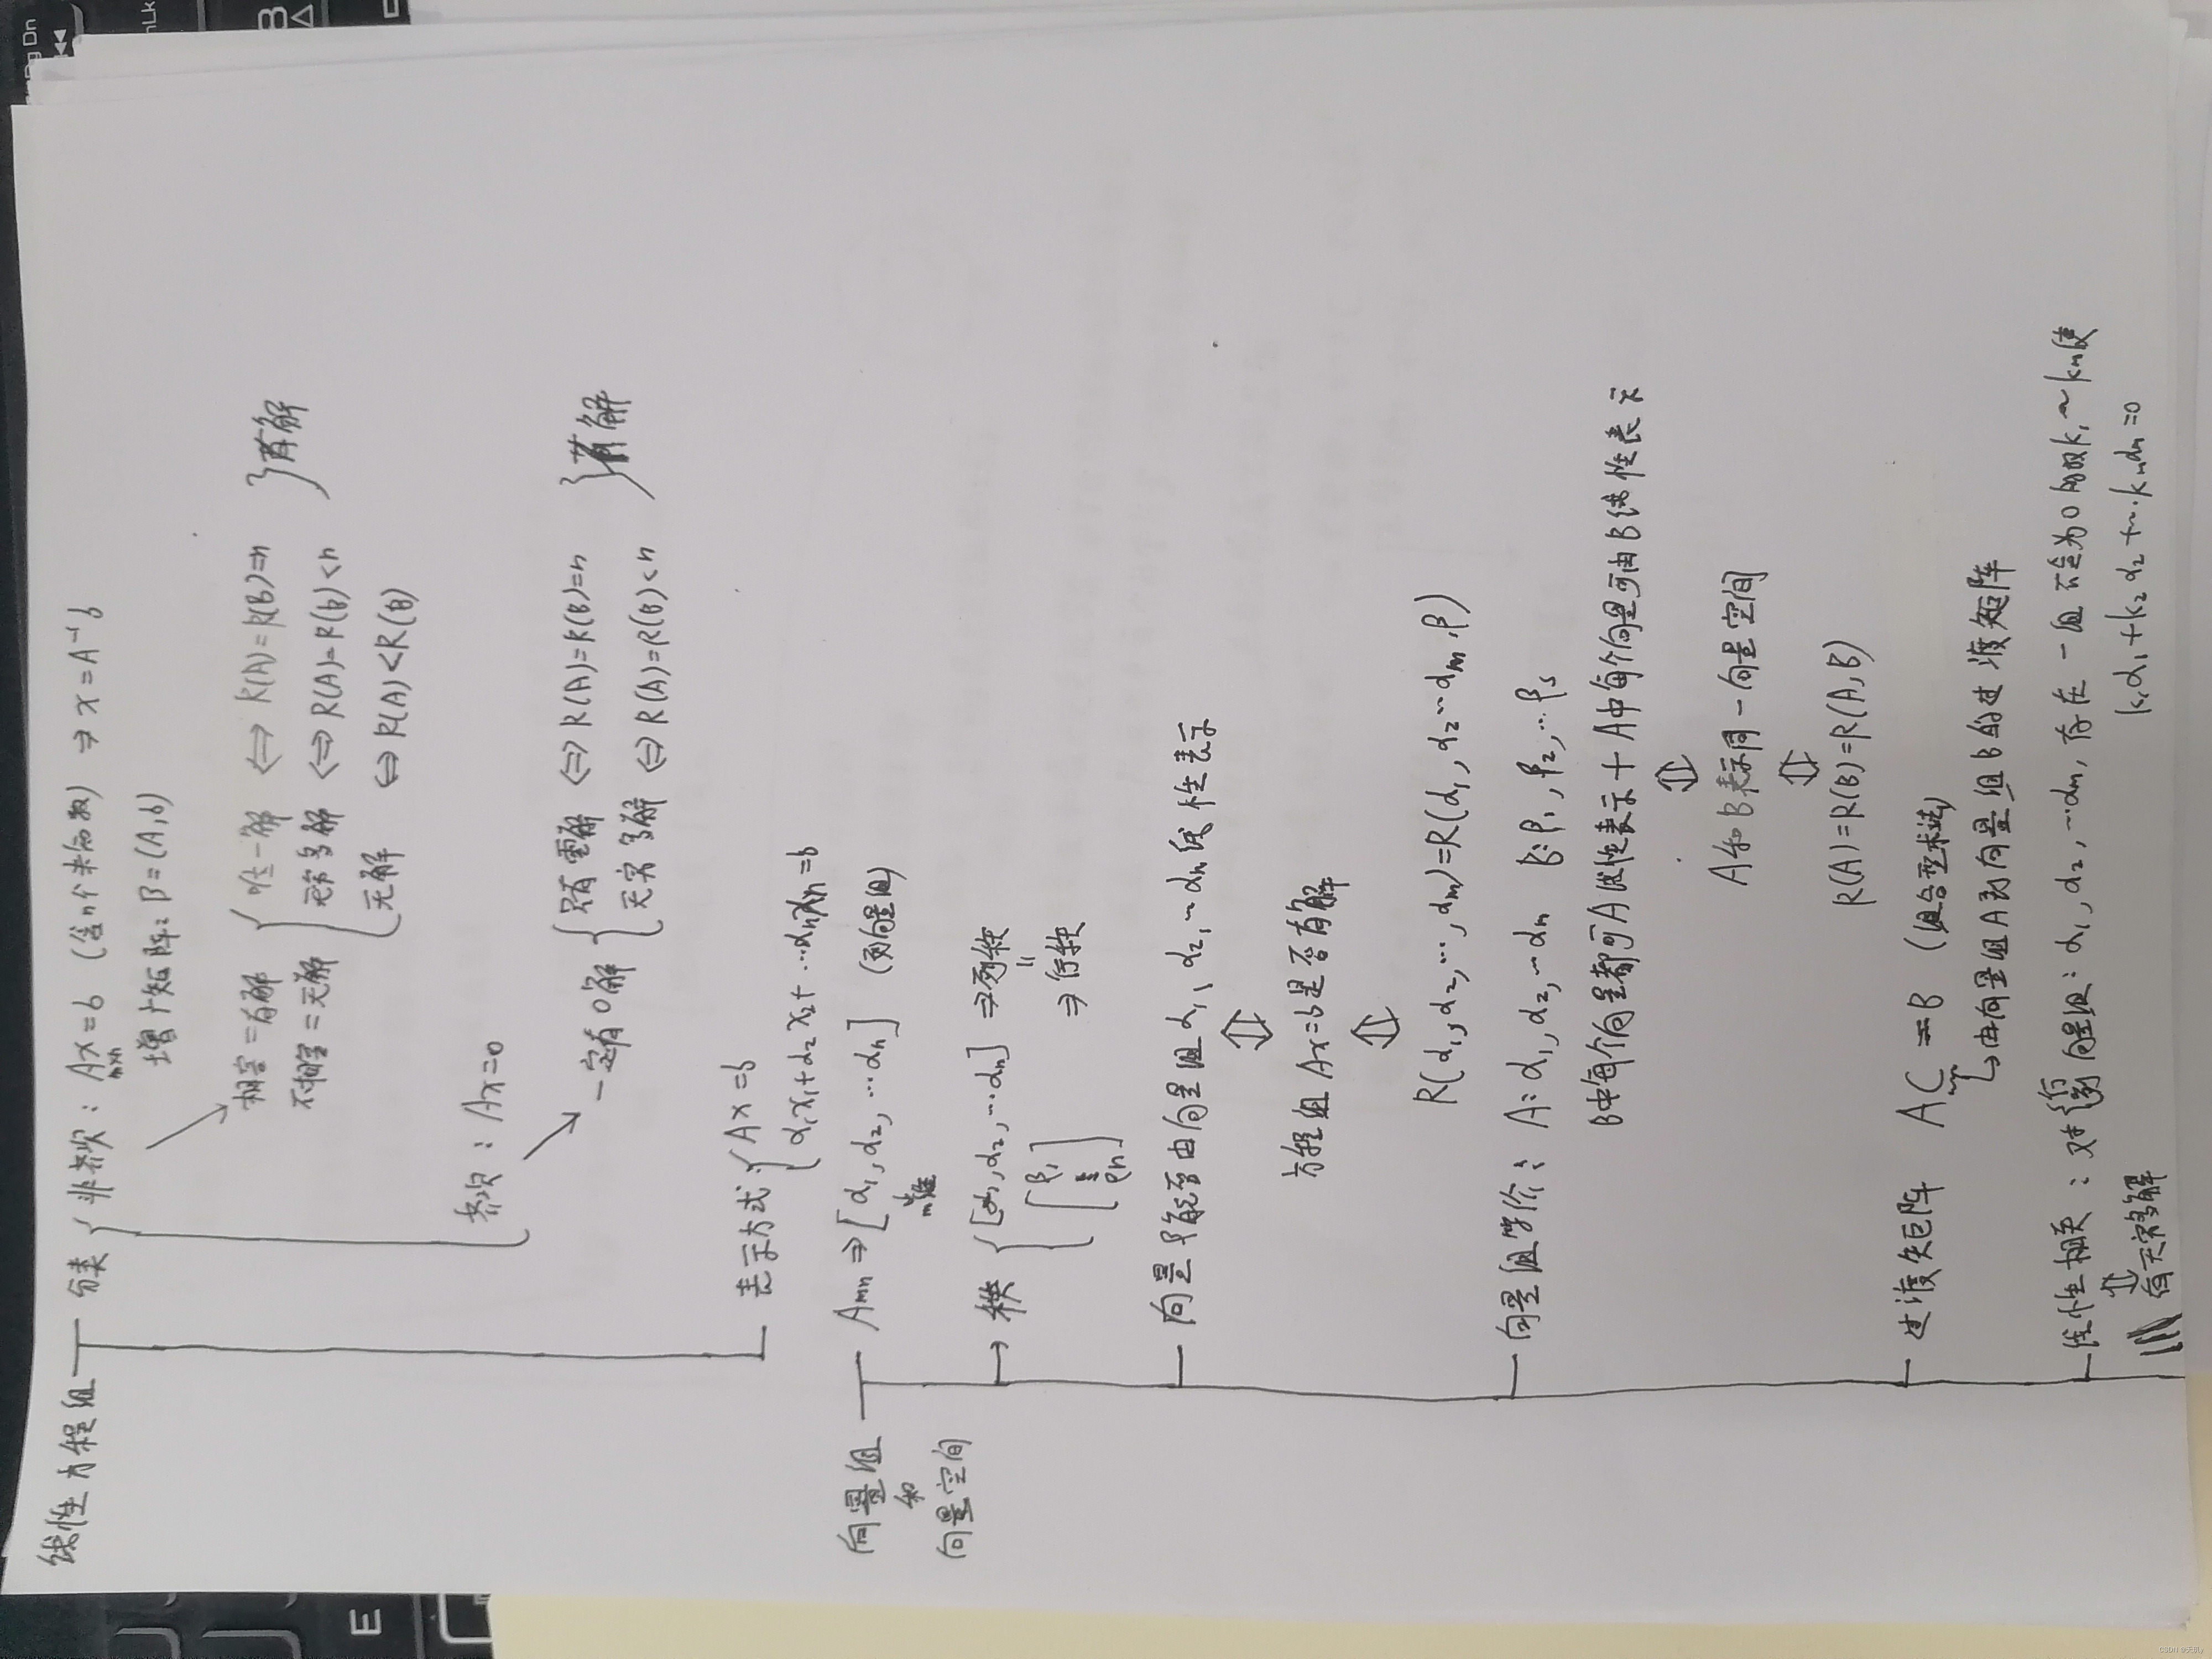 线性方程组 — 分类 { 非齐次: Ax=b (含n个未知数) ⇒ x=A⁻¹b
m×n
增广矩阵: B=(A,b)
相容=有解 { 唯一解 ⇔ R(A)=R(B)=n } 有解
不相容=无解 无穷多解 ⇔ R(A)=R(B)<n
无解 ⇔ R(A)<R(B)
齐次: Ax=0
一定有0解 { 只有零解 ⇔ R(A)=R(B)=n } 有解
无穷多解 ⇔ R(A)=R(B)<n
表示方式: { Ax=b
α₁x₁+α₂x₂+⋯αₙxₙ=b
向量组 和 向量空间 — Amn ⇒ [α₁,α₂,⋯αₙ] (列向量组)
m维
秩 { [α₁,α₂,⋯αₙ] ⇒列秩
=
[β₁ ⋮ βn] ⇒行秩
向量β能否由向量组α₁,α₂,⋯αₙ线性表示
⇕
方程组Ax=b是否有解
⇕
R(α₁,α₂,⋯,αm)=R(α₁,α₂⋯αm,β)
向量组等价: A:α₁,α₂,⋯αₙ B:β₁,β₂,⋯βs
B中每个向量都可A线性表示+A中每个向量可由B线性表示
⇕
A和B表示同一向量空间
⇕
R(A)=R(B)=R(A,B)
过渡矩阵 AC=B (组合型求法)
↳由向量组A到向量组B的过渡矩阵
线性相关: 对行列向量组: α₁,α₂,⋯αm,存在一组不全为0的数k₁~km使
⇕ k₁α₁+k₂α₂+⋯kmαm=0
有无穷多解
Pg Dn
nLk
8
E
CSDN